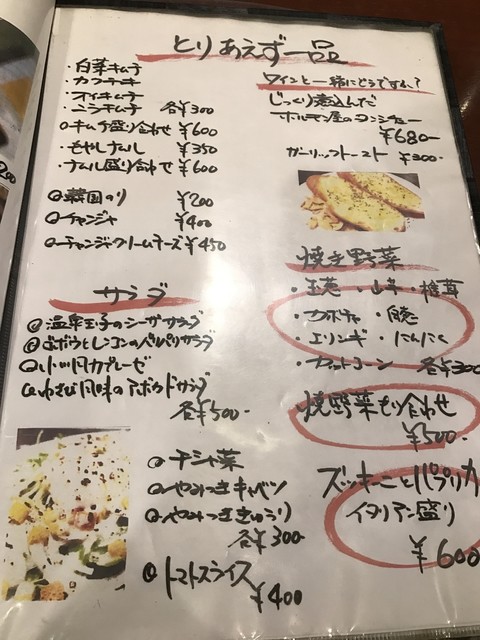 とりあえず一品
・白菜キムチ
・カクテキ
・オイキムチ
・ニラキムチ 各¥300
◎キムチ盛り合わせ ¥600
・もやしナムル ¥350
・ナムル盛り合わせ ¥600
◎韓国のり ¥200
◎チャンジャ ¥400
◎チャンジャクリームチーズ ¥450
サラダ
◎温泉玉子のシーザーサラダ
◎ごボウとレンコンのパリパリサラダ
◎わさび風味のアボカドサラダ
各¥500-
◎チシャ菜
◎やみつきキャベツ
◎やみつききゅうり
各¥300-
◎トマトスライス
¥400
ワインと一緒にどうですか?
じっくり煮込んだ
ホルモン屋のタンシチュー
¥680-
ガーリックトースト ¥300-
焼き野菜
・玉葱 ・山芋 ・椎茸
・カボチャ
・エリンギ ・にんにく
・ヤングコーン 各¥300
焼野菜もり合わせ
¥500-
ズッキーニとパプリカ
イタリアン盛り
¥600